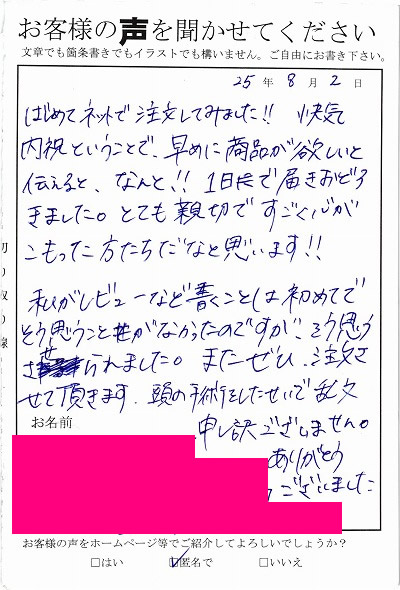 お客様の声を聞かせてください
文章でも箇条書きでもイラストでも構いません。ご自由にお書き下さい。
25年8月2日
はじめてネットで注文してみました!! 快気
内祝ということで、早めに商品が欲しいと
伝えると、なんと!! 1日半で届きおどろ
きました。とても親切ですごく心が
こもった方たちだなと思います!!
私がレビューなど書くことは初めてで
そう思うことがなかったのですが、そう思う
させられました。またぜひ、注文さ
せて頂きます、頭の手術をしたせいで乱文
申し訳ございません。
ありがとう
ございました
お名前
お客様の声をホームページ等でご紹介してよろしいでしょうか?
□はい ☑匿名で □いいえ